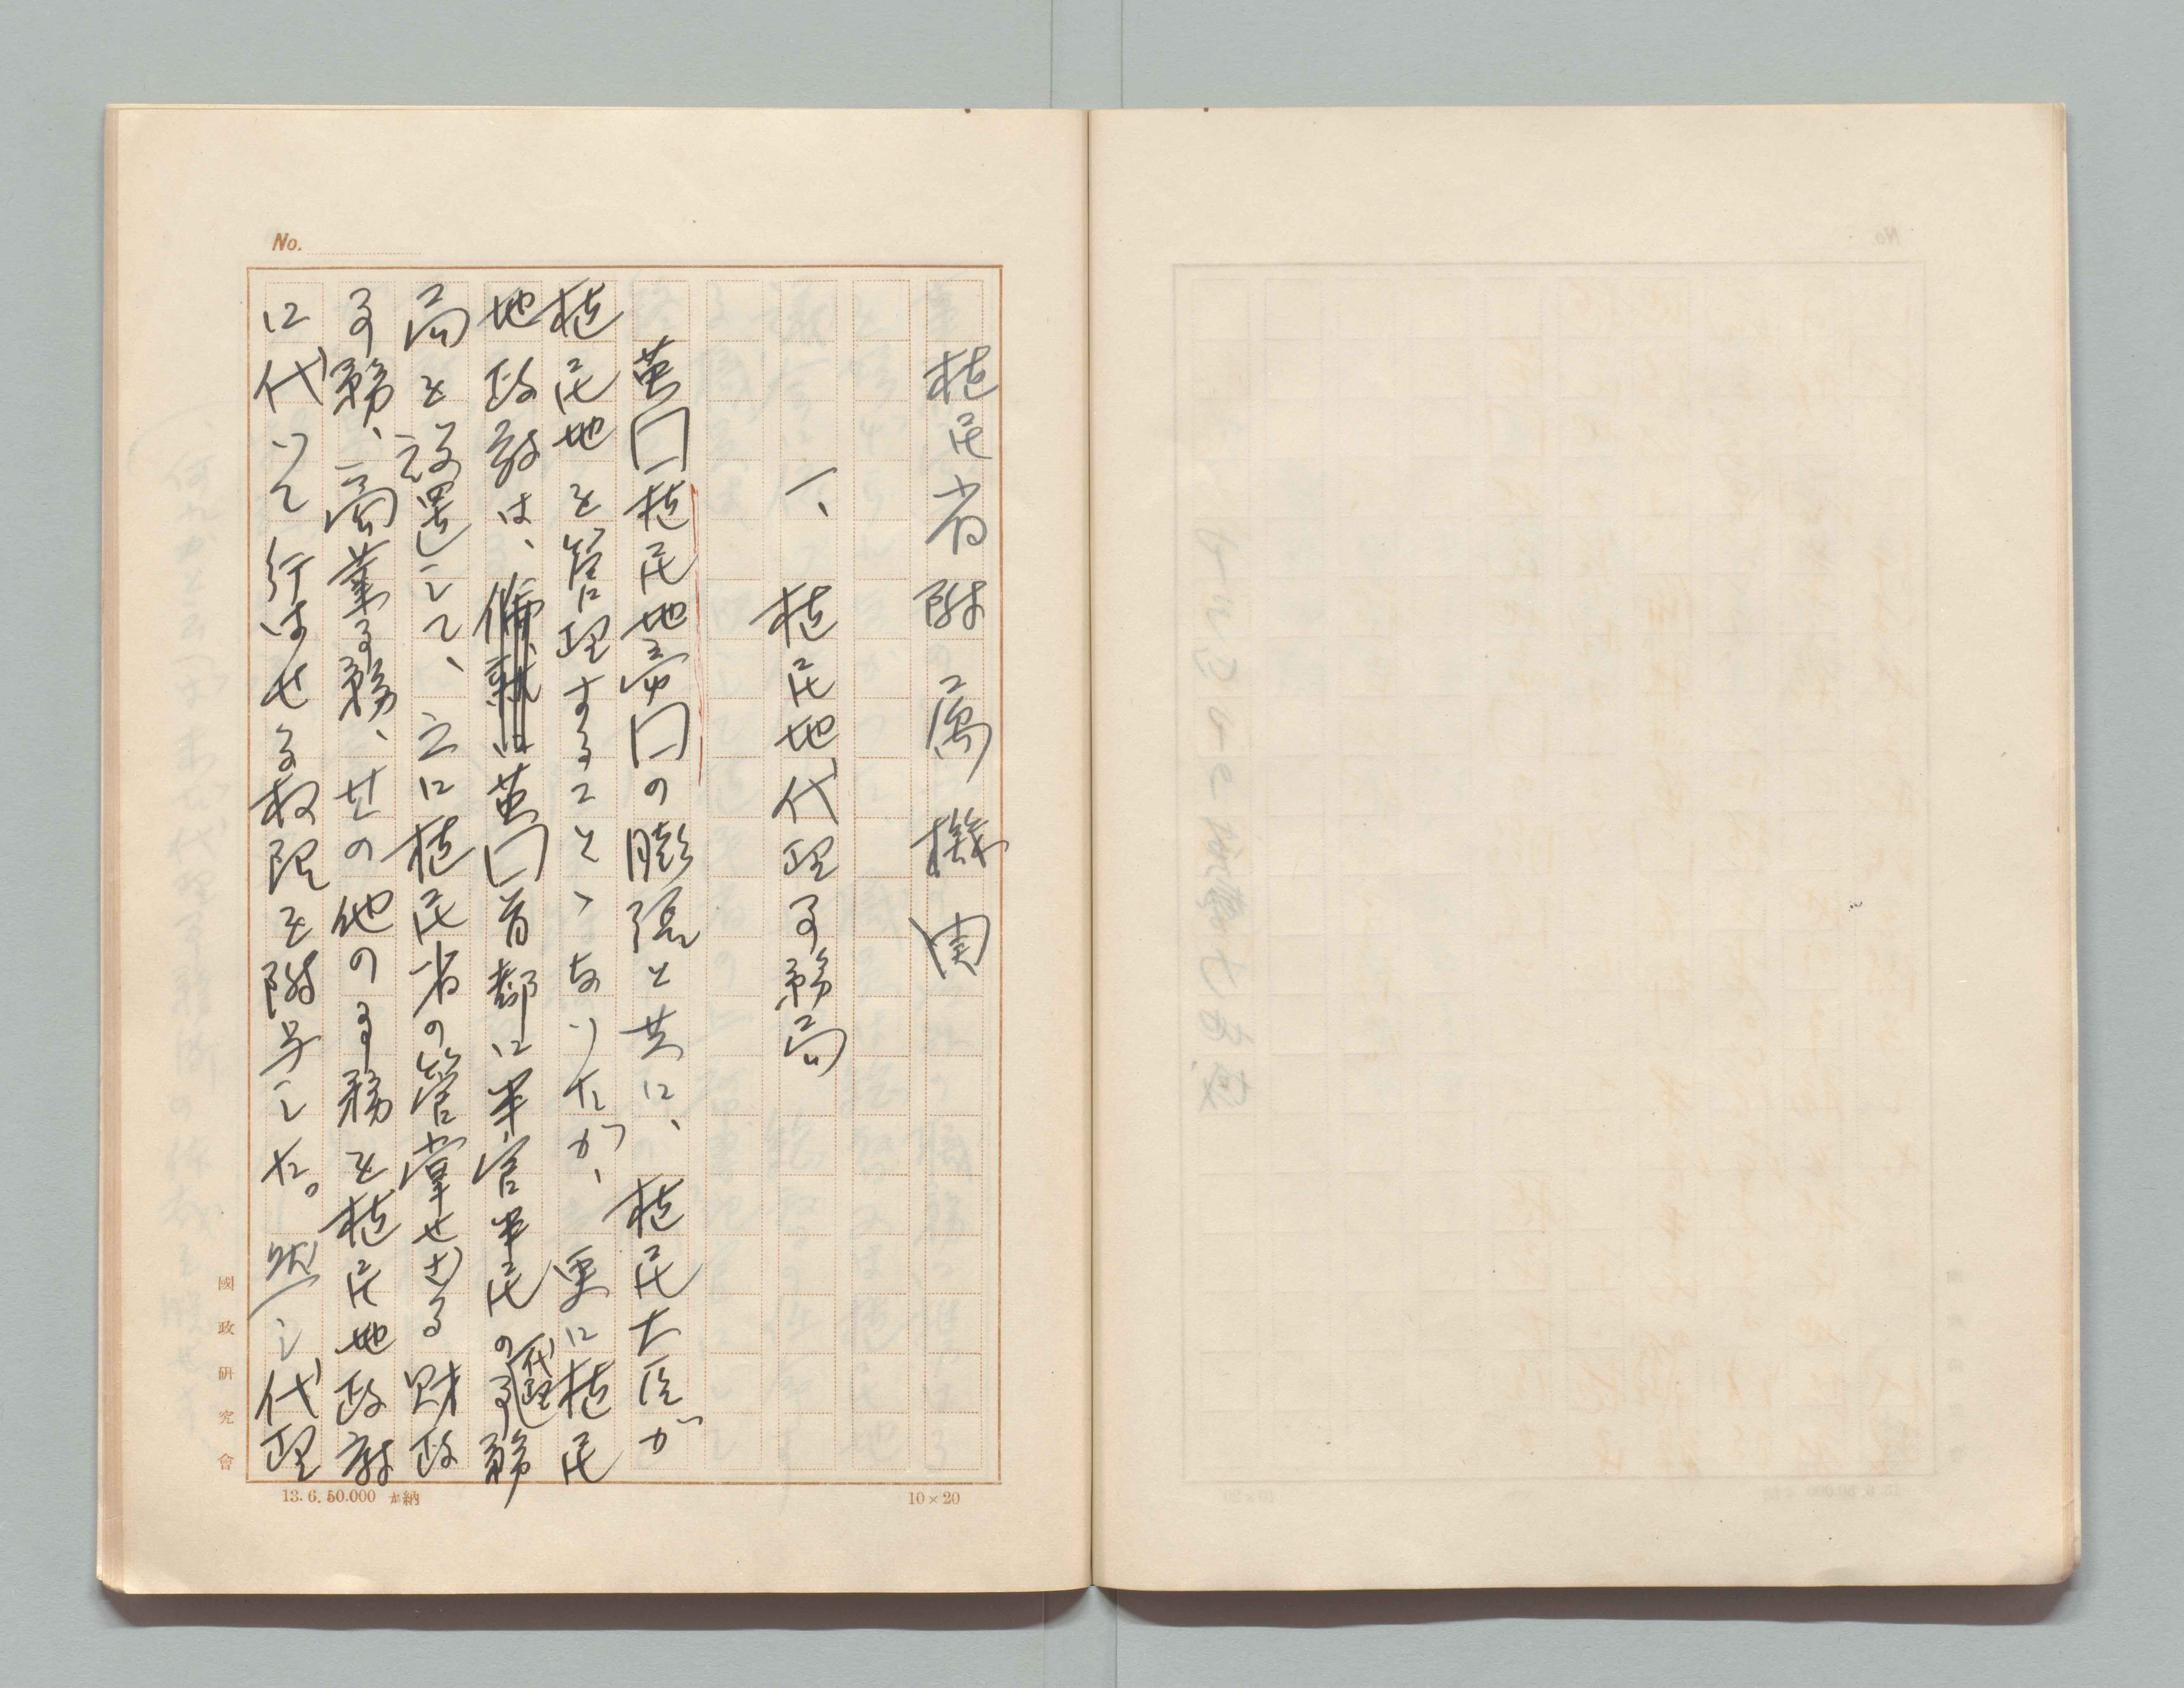 植民省附属機関
一、植民地代理事務局
英国植民地帝国の膨張と共に、植民大臣が
植民地を管理することゝなりたが、更に植民
地政府は、英国首都に半官半民の代理事務
局を設置して、之に植民省の管掌せざる財政
事務、商業事務、其の他の事務を植民地政府
に代りて行はせる权限を附与した。然し代理
No.
國政研究會
13.6.50.000 納
10×20